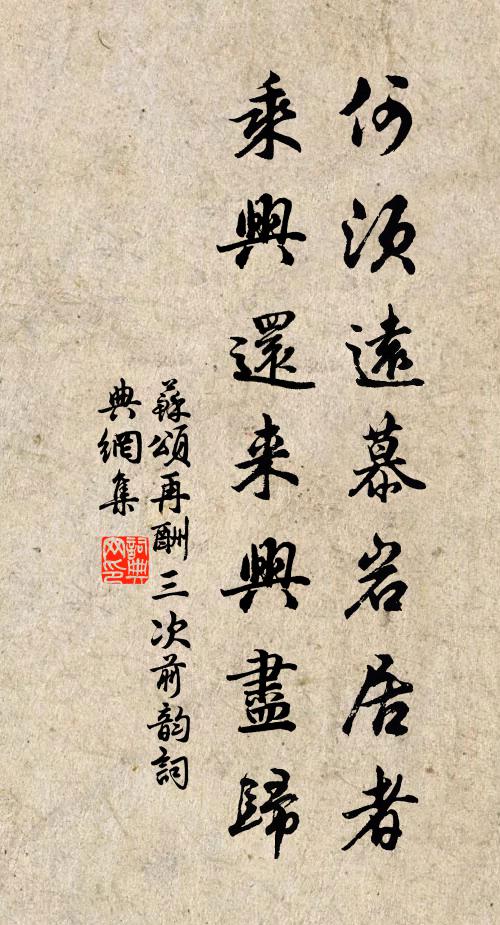 何須遠慕岩居者
乘興還来興盡歸
蘇頌再酬三次前韵詞
典網集
詞典网印